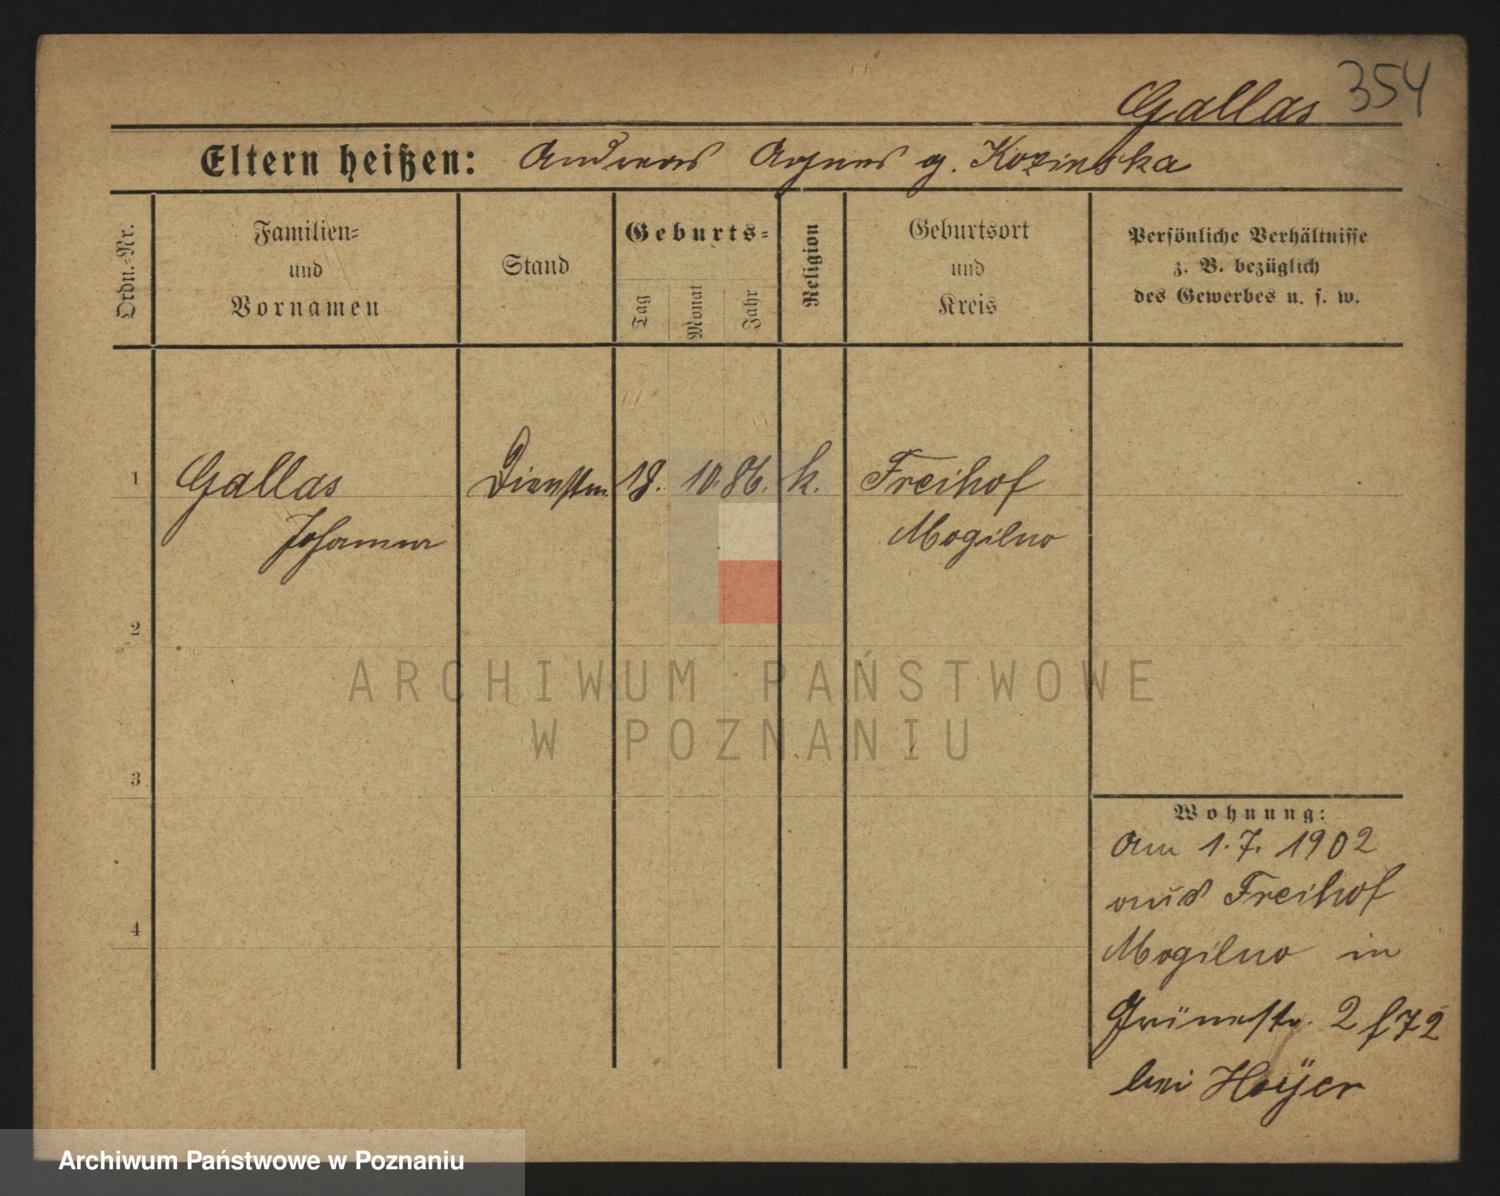 354
Gallas
Eltern heißen: Andreas Agnes g. Kozinska
Ordn.-Nr.
Familien-
und
Vornamen
Stand
Geburts-
Tag
Monat
Jahr
Religion
Geburtsort
und
Kreis
Persönliche Verhältnisse
z. B. bezüglich
des Gewerbes u. s. w.
1 Gallas Dienstm 18. 10. 86. k. Freihof
Johanna Mogilno
2
3
4
Wohnung:
Am 1. 7. 1902
aus Freihof
Mogilno in
Grünestr. 2 f 72
bei Hoÿer
ARCHIWUM PAŃSTWOWE
W POZNANIU
Archiwum Państwowe w Poznaniu